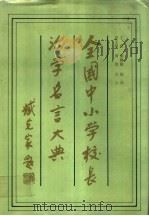 全国中小学校长
治学名言大典
臧克家题